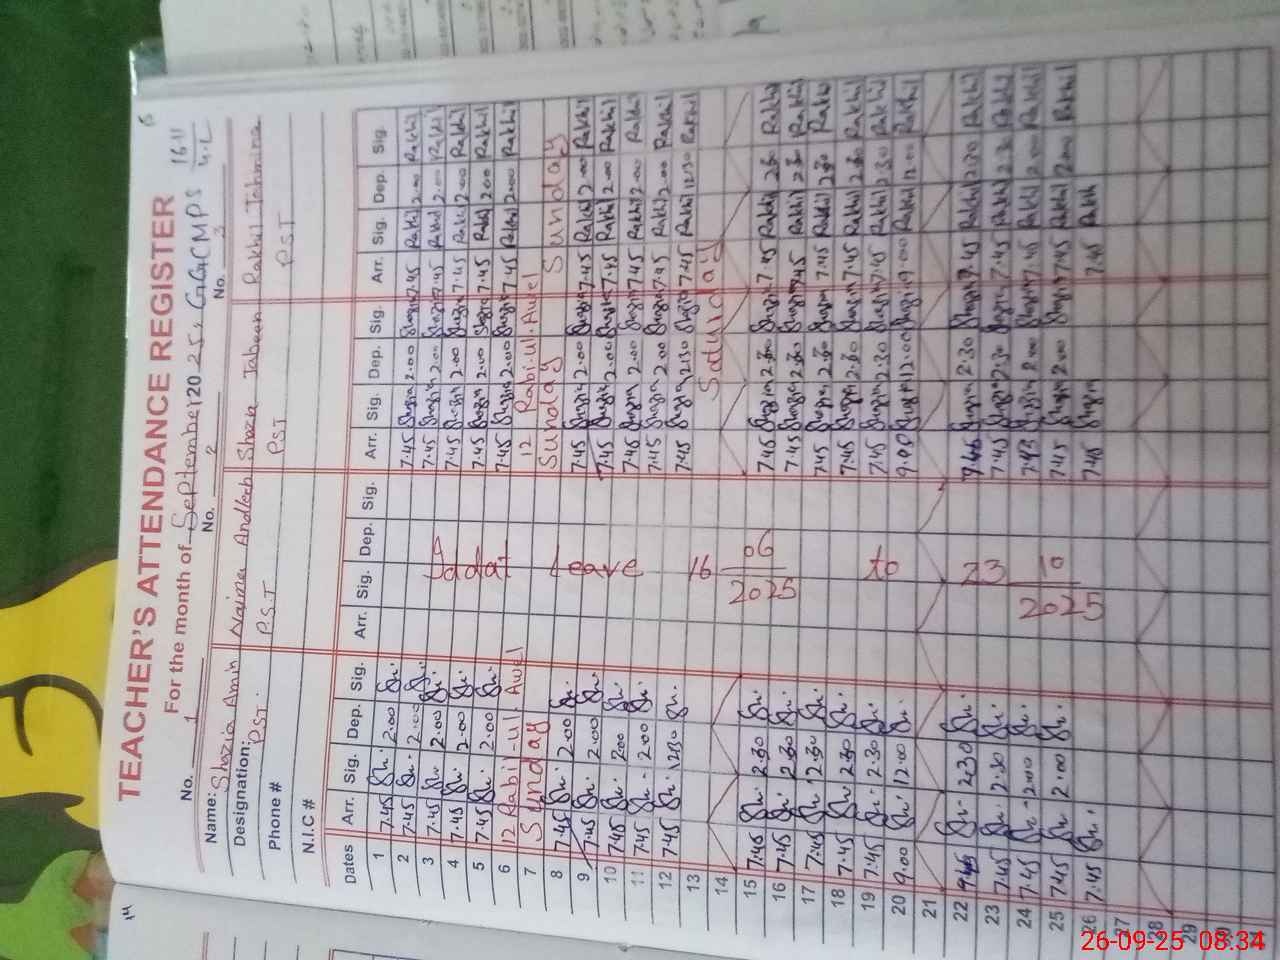 TEACHER'S ATTENDANCE REGISTER
For the month of September 2025, GGCMPS
No. 1 No. 2 No. 3
Name: Shazia Amin Naima Andleeb Shazia Jabeen Rakhil Tahmina
Designation: PST. P.S.T PST PST
Phone #
N.I.C #
Dates Arr. Sig. Dep. Sig. Arr. Sig. Dep. Sig. Arr. Sig. Dep. Sig. Arr. Sig. Dep. Sig.
1 7.45 2.00 7.45 Shazia 2.00 Shazia 7.45 Rakhil 2.00 Rakhil
2 7.45 2.00 7.45 Shazia 2.00 Shazia 7.45 Rakhil 2.00 Rakhil
3 7.45 2.00 7.45 Shazia 2.00 Shazia 7.45 Rakhil 2.00 Rakhil
4 7.45 2.00 7.45 Shazia 2.00 Shazia 7.45 Rakhil 2.00 Rakhil
5 7.45 2.00 7.45 Shazia 2.00 Shazia 7.45 Rakhil 2.00 Rakhil
6 12 Rabi-ul-Awel 12 Rabi-ul-Awel
7 Sunday Sunday Sunday
8 7.45 2.00 7.45 Shazia 2.00 Shazia 7.45 Rakhil 2.00 Rakhil
9 7.45 2.00 7.45 Shazia 2.00 Shazia 7.45 Rakhil 2.00 Rakhil
10 7.45 2.00 7.45 Shazia 2.00 Shazia 7.45 Rakhil 2.00 Rakhil
11 7.45 2.00 7.45 Shazia 2.00 Shazia 7.45 Rakhil 2.00 Rakhil
12 7.45 1230 7.45 Shazia 1230 Shazia 7.45 Rakhil 1230 Rakhil
13 Saturday
14
15 7.45 2.30 7.45 Shazia 2.30 Shazia 7.45 Rakhil 2.30 Rakhil
16 7.45 2.30 7.45 Shazia 2.30 Shazia 7.45 Rakhil 2.30 Rakhil
17 7.45 2.30 7.45 Shazia 2.30 Shazia 7.45 Rakhil 2.30 Rakhil
18 7.45 2.30 7.45 Shazia 2.30 Shazia 7.45 Rakhil 2.30 Rakhil
19 7.45 2.30 7.45 Shazia 2.30 Shazia 7.45 Rakhil 2.30 Rakhil
20 9.00 12.00 9.00 Shazia 12.00 Shazia 9.00 Rakhil 12.00 Rakhil
21
22 7.45 2.30 7.45 Shazia 2.30 Shazia 7.45 Rakhil 2.30 Rakhil
23 7.45 2.30 7.45 Shazia 2.30 Shazia 7.45 Rakhil 2.30 Rakhil
24 7.45 2.00 7.45 Shazia 2.00 Shazia 7.45 Rakhil 2.00 Rakhil
25 7.45 2.00 7.45 Shazia 2.00 Shazia 7.45 Rakhil 2.00 Rakhil
26 7.45 7.45 Shazia 7.45 Rakhil
27
28
29
30
31
Iddat leave 16 06 2025 to 23 10 2025
26-09-25 08:34